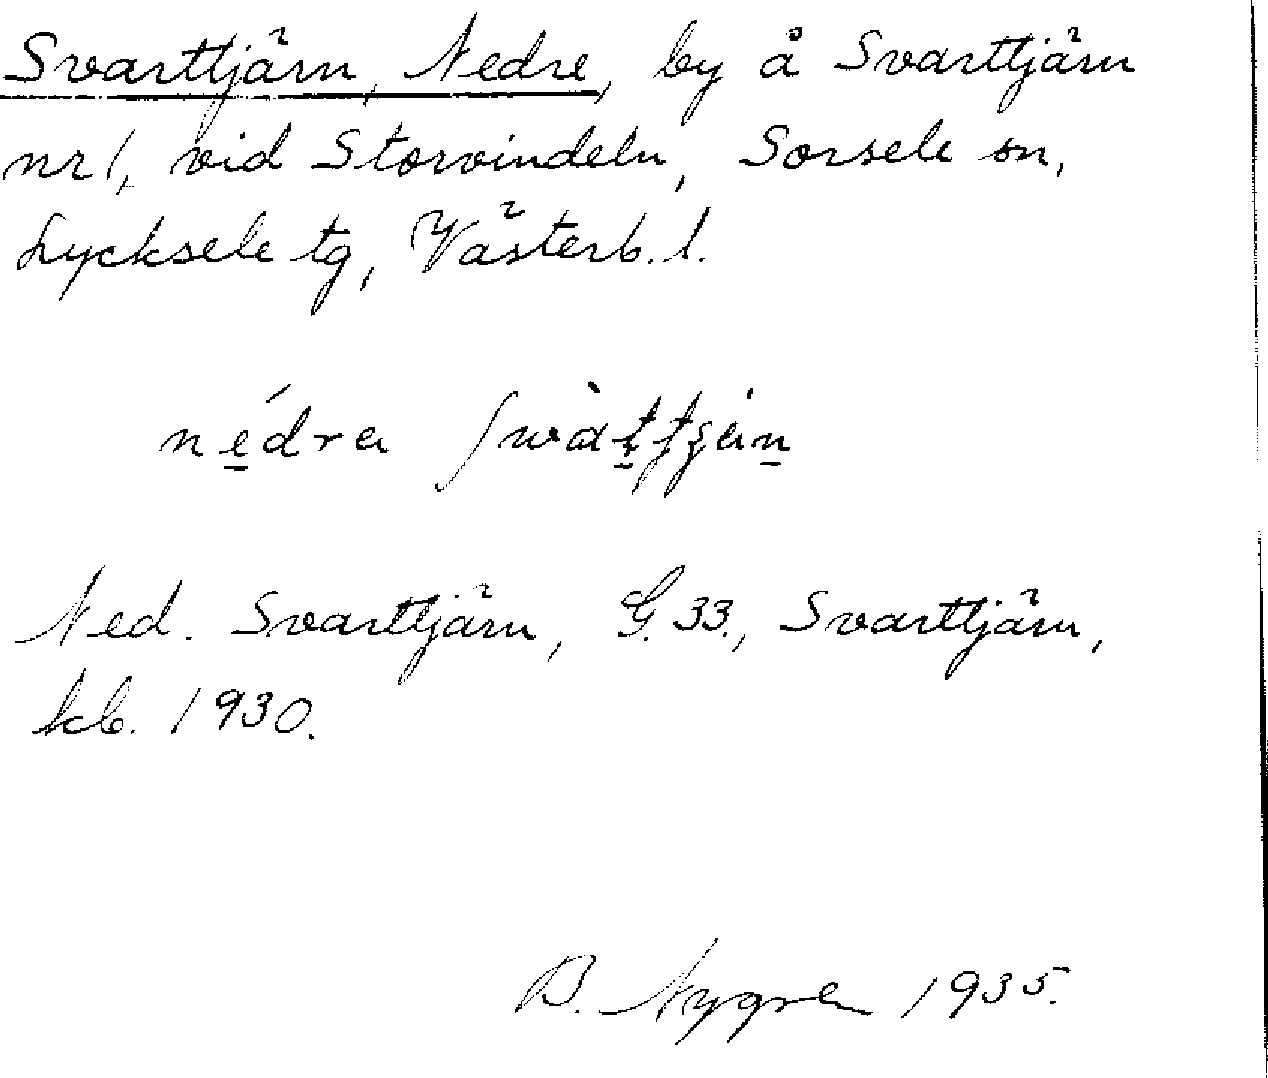 Svarttjärn, Nedre, by å Svarttjärn
nr 1, vid Storvindeln, Sorsele sn,
Lycksele tg, Västerb. l.
nédra
Ned. Svarttjärn, G. 33., Svarttjärn,
kb. 1930.
B. Nygren 1935.